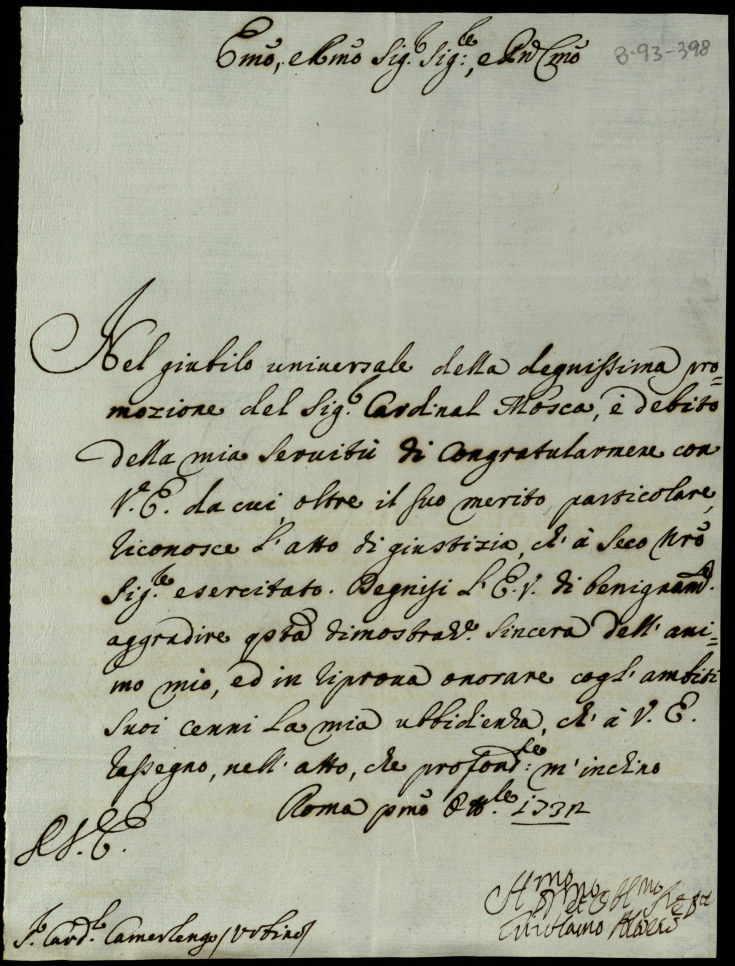 Emo, e Rmo Sig.r Sig.re, e Pñe Cmo
8-93-398
Nel giubilo universale della degnissima pro=
mozione del Sig.r Cardinal Mosca, è debito
della mia servitù di Congratularmene con
V.a E. da cui, oltre il suo merito particolare,
riconosce l'atto di giustizia, ch'à seco Nro
Sig.re esercitato. Degnisi l'E.V. di benignam.e
aggradire qsta dimostraz.e sincera dell'ani=
mo mio, ed in riprova onorare cogl'ambiti
suoi cenni la mia ubbidienza, ch'à V. E.
rassegno, nell'atto, che profond.te m'inchino
Roma pmo 8bre
S.r Card.l Camerlengo / Urbino /